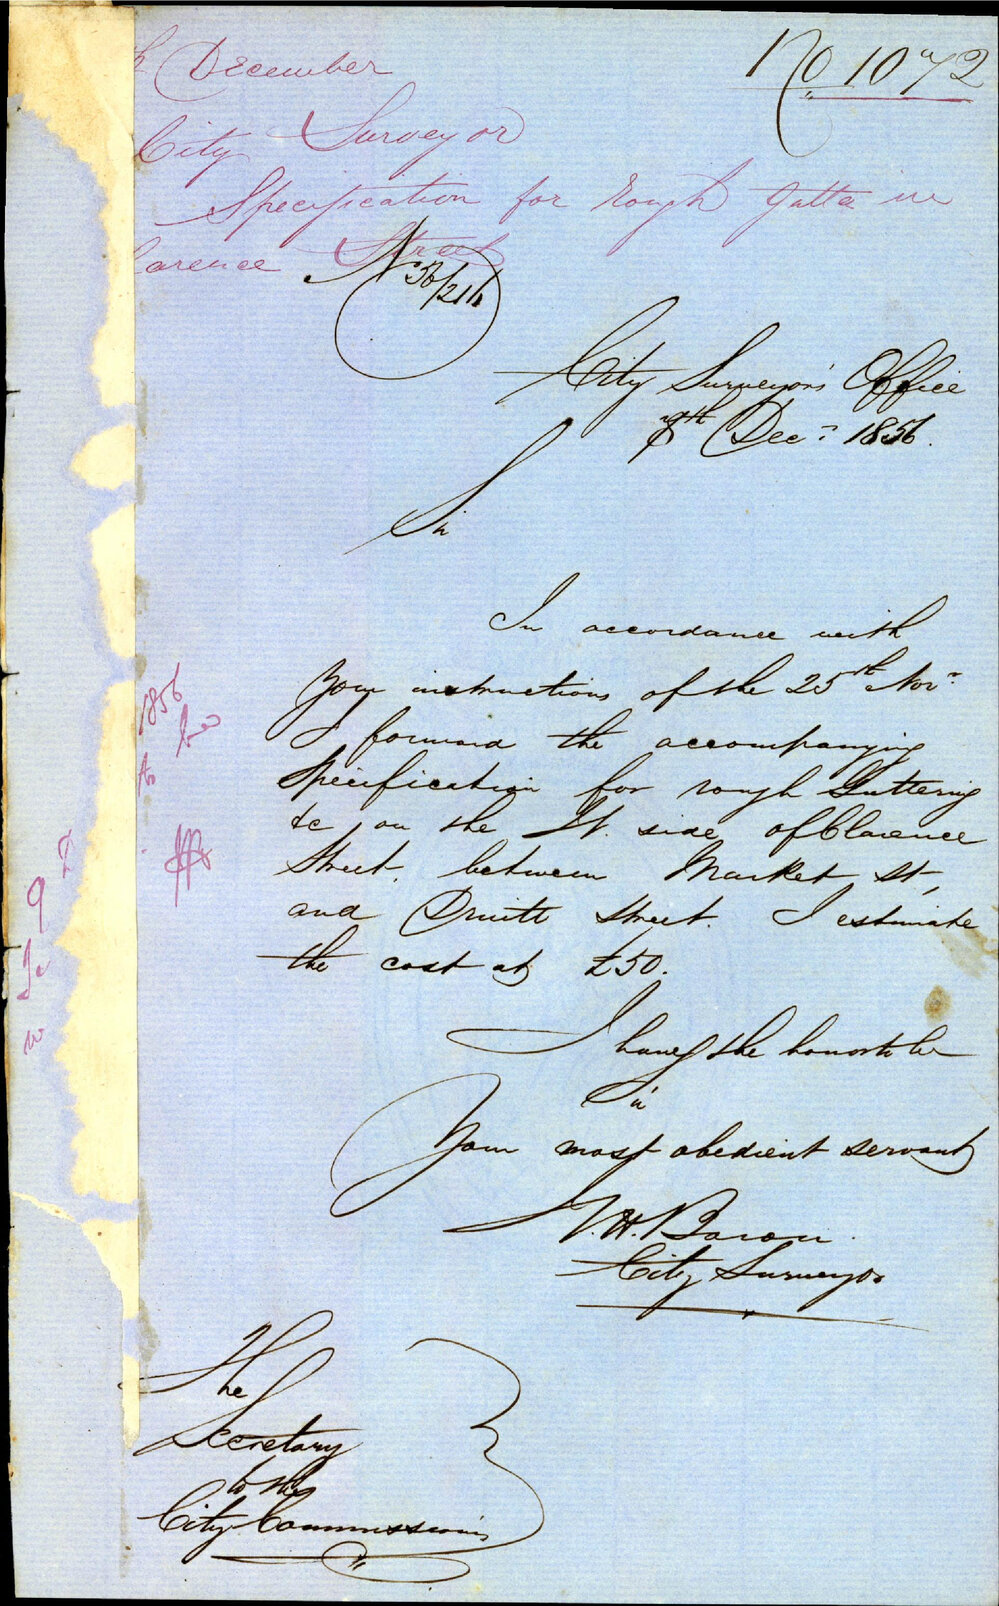 December
No 1072
City Surveyor
Specification for rough Gutter in
Clarence Street
No 56/
City Surveyor's Office
8th Decr 1856.
Sir
In accordance with
your instructions of the 25th Novr
I forward the accompanying
Specification for rough Guttering
&c, on the Wt. side of Clarence
Street, between Market St,
and Druitt Street. I estimate
the cost at £50.
I have the honor to be
Sir
Your most obedient servant
City Surveyor
The
Secretary
to the
City Commissioners
1856
9